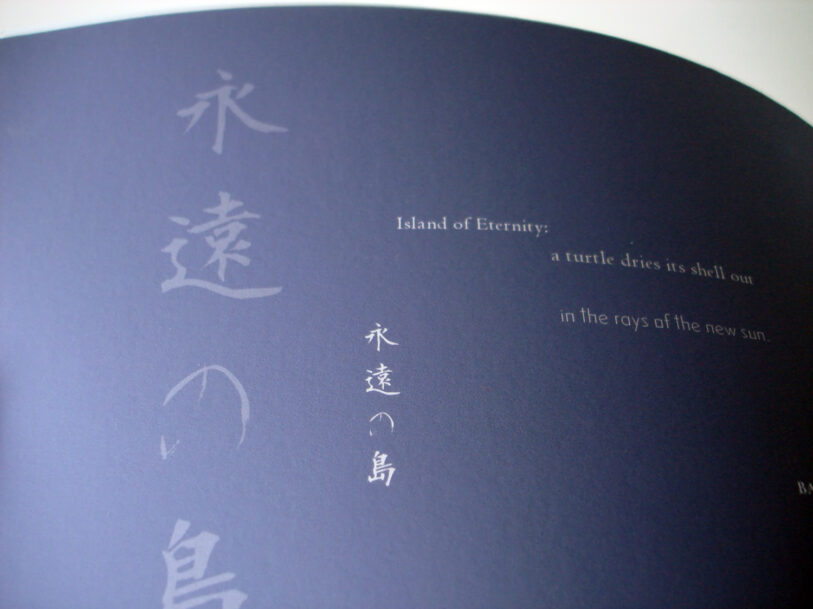 永遠の島
永遠の島
Island of Eternity:
a turtle dries its shell out
in the rays of the new sun.